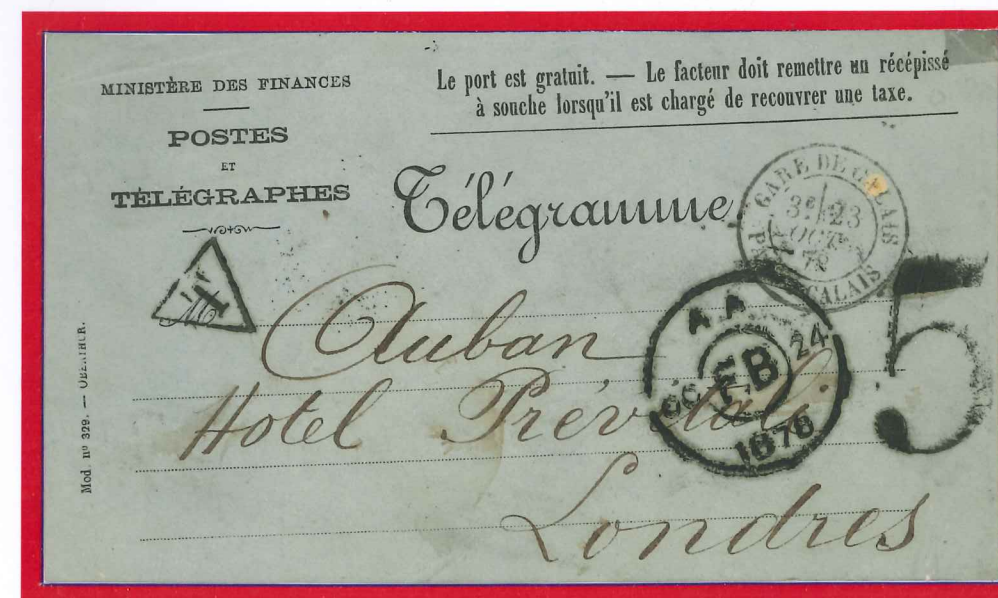 MINISTÈRE DES FINANCES
POSTES
ET
TÉLÉGRAPHES
Le port est gratuit. — Le facteur doit remettre un récépissé
à souche lorsqu'il est chargé de recouvrer une taxe.
Télégramme
GARE DE CALAIS
3E 23
OCT
78
CALAIS
T
Auban
Hotel Prévitali
Londres
A A
OC FB 24
1878
5
Mod. nº 329. — OBERTHUR.